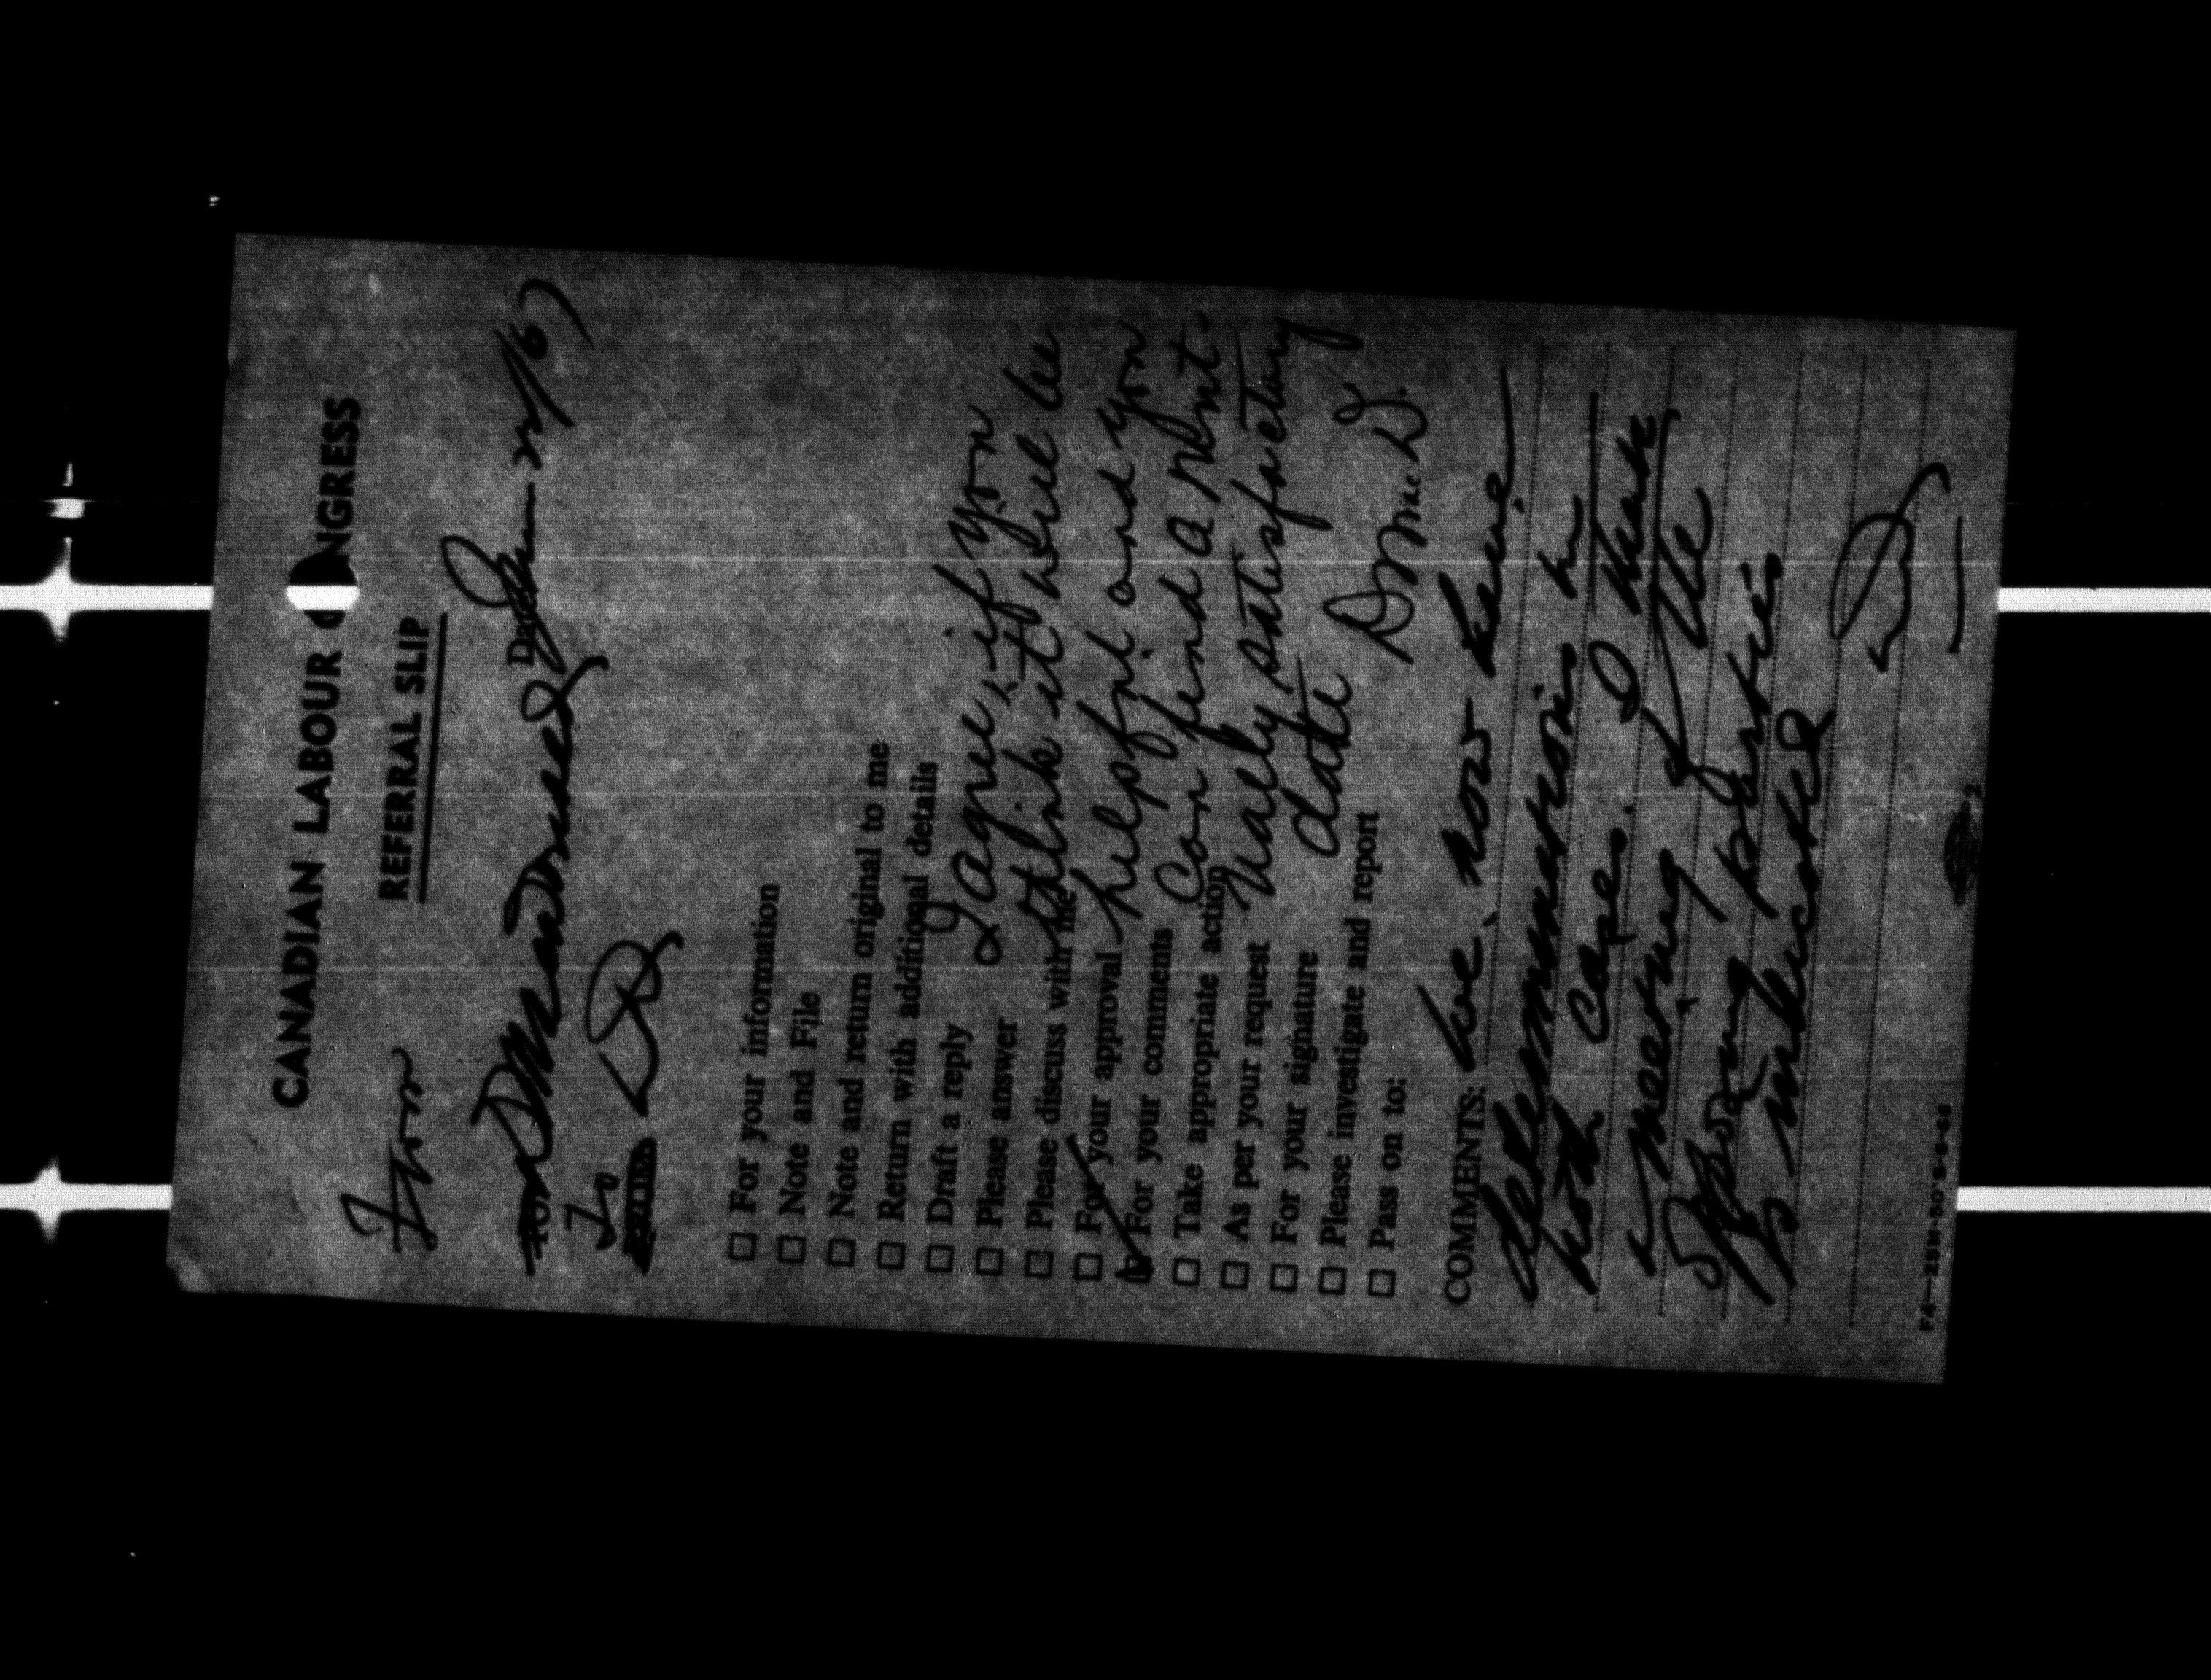 CANADIAN LABOUR CONGRESS
REFERRAL SLIP
From
D MacDonald
Date Jan 27/67
To
☐ For your information
☐ Note and File
☐ Note and return original to me
☐ Return with additional details
☐ Draft a reply
☐ Please answer
☐ Please discuss with me
☐ For your approval
☑ For your comments
☐ Take appropriate action
☐ As per your request
☐ For your signature
☐ Please investigate and report
☐ Pass on to:
I agree, if you
think it will be
helpful and you
can find a mut-
ually satisfactory
date
D Mac D.
COMMENTS: we now have
determinations in
both cases. I think
a meeting of the
opposing parties
is indicated
F4-25M-50'S-6-66
2